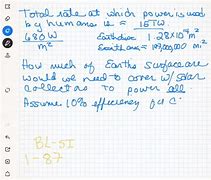 Total rate at which power is used
by humans is = 15TW
680W
m² Earth disc 1.28×10¹⁴ m²
Earth area = 197,000,000 m²
How much of Earths surface are
would we need to cover w/ solar
collectors to power all.
Assume 10% efficiency for C:
BL-SI
1-87